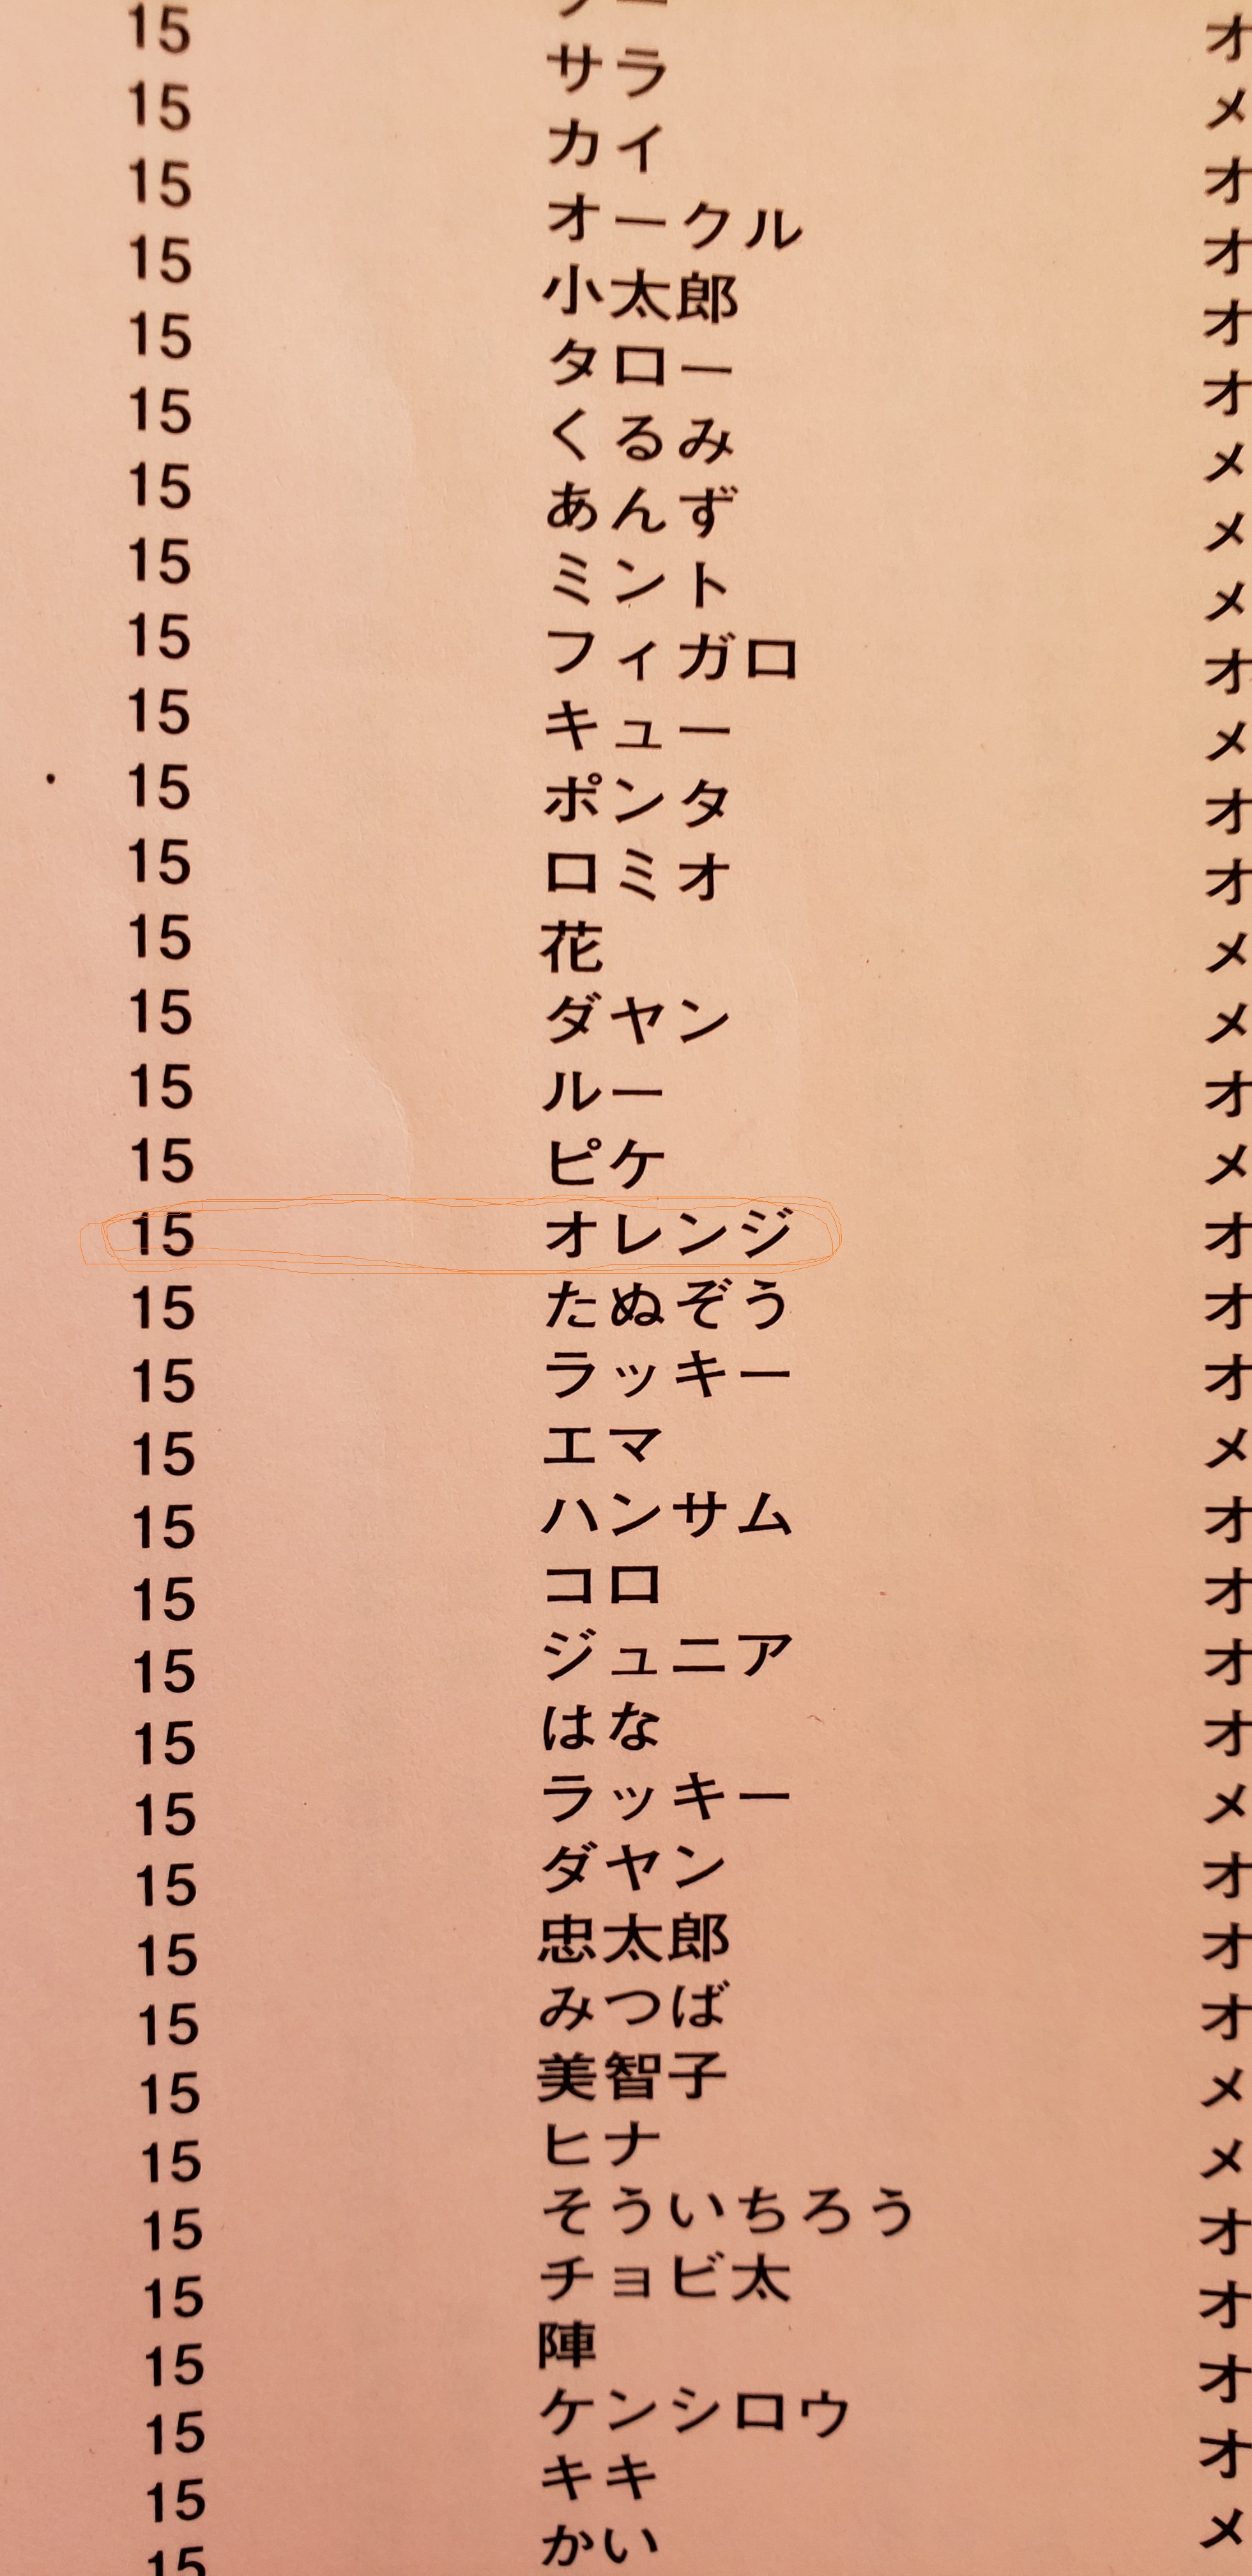 オ
15 サラ メ
15 カイ オ
15 オークル オ
15 小太郎 オ
15 タロー オ
15 くるみ メ
15 あんず メ
15 ミント メ
15 フィガロ オ
15 キュー メ
15 ポンタ オ
15 ロミオ オ
15 花 メ
15 ダヤン メ
15 ルー オ
15 ピケ メ
15 オレンジ オ
15 たぬぞう オ
15 ラッキー オ
15 エマ メ
15 ハンサム オ
15 コロ オ
15 ジュニア オ
15 はな オ
15 ラッキー メ
15 ダヤン オ
15 忠太郎 オ
15 みつば オ
15 美智子 メ
15 ヒナ メ
15 そういちろう オ
15 チョビ太 オ
15 陣 オ
15 ケンシロウ オ
15 キキ メ
15 かい